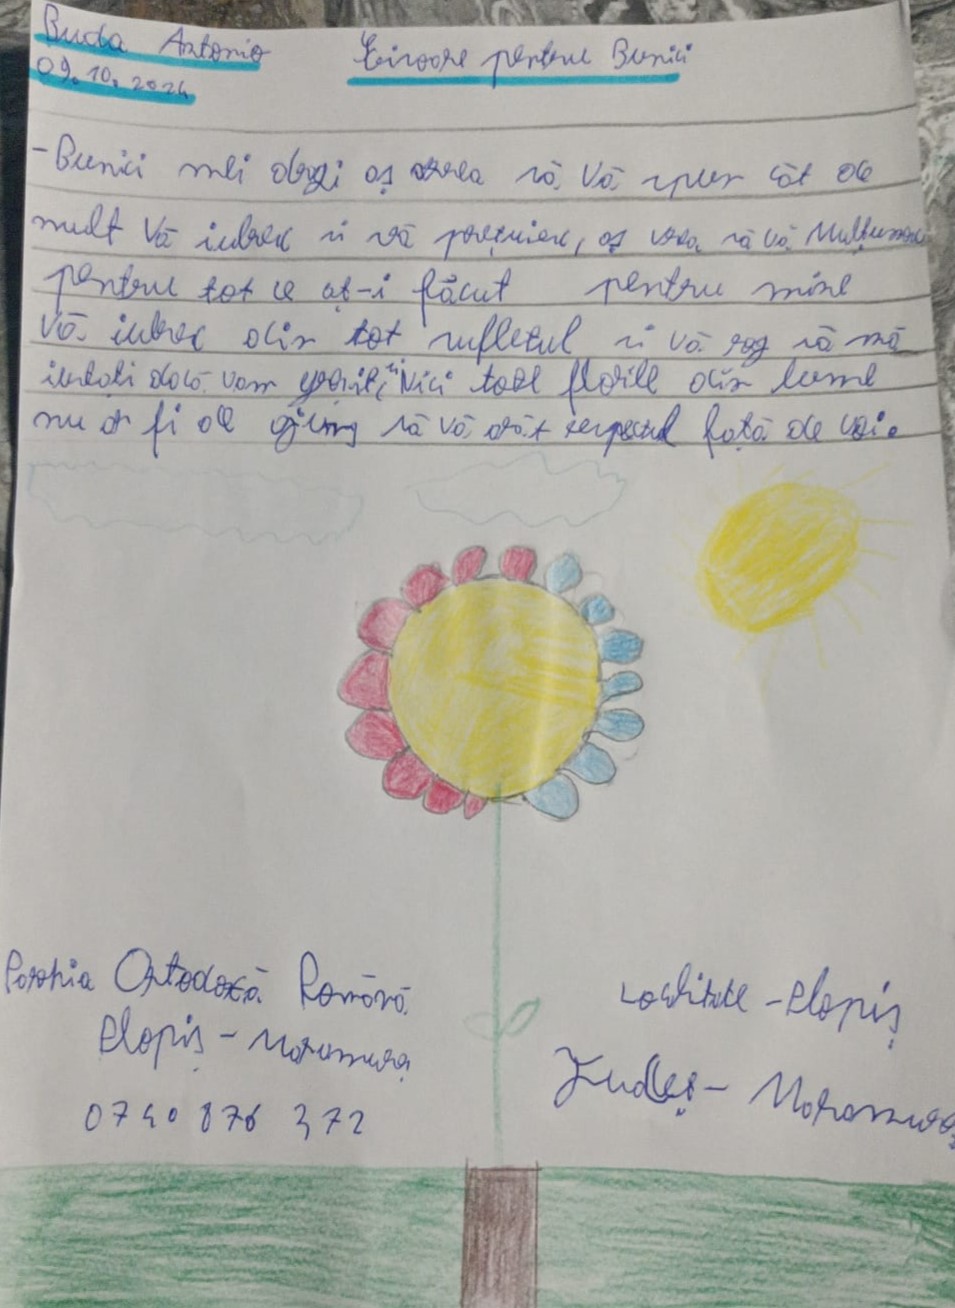 Buda Antonio
09.10.2024
Scrisoare pentru Bunici
-Bunici mei dragi aș vrea să Vă spun cât de
mult Vă iubesc și vă prețuiesc, aș vrea să vă Mulțumesc
pentru tot ce aț-i făcut pentru mine
Vă iubesc din tot sufletul și Vă rog să mă
iertați dacă v-am greșit, "Nici toate florile din lume
nu ar fi de ajuns să vă arăt respectul față de voi.
Parohia Ortodoxă Română
Plopiș - Maramureș
0740 876 372
Localitate - Plopiș
Județ - Maramureș